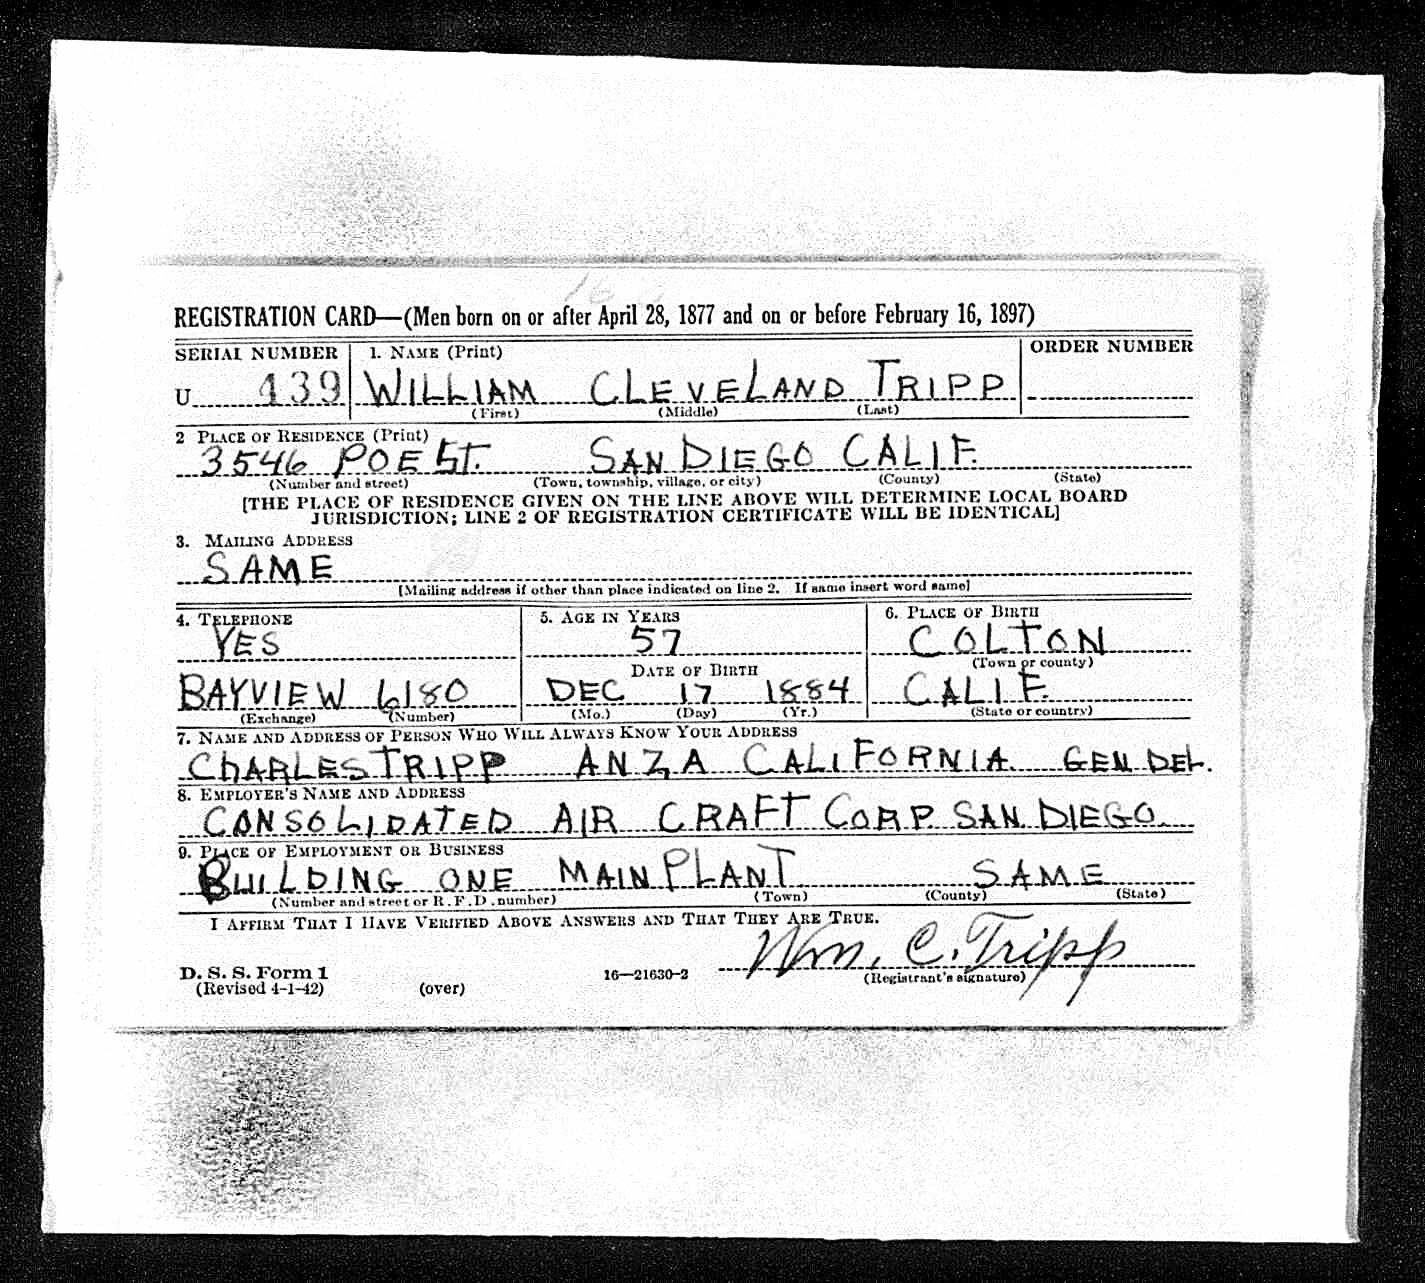 REGISTRATION CARD—(Men born on or after April 28, 1877 and on or before February 16, 1897)
SERIAL NUMBER 1. NAME (Print) ORDER NUMBER
U 439 WILLIAM CLEVELAND TRIPP
(First) (Middle) (Last)
2 PLACE OF RESIDENCE (Print)
3546 POE ST. SAN DIEGO CALIF.
(Number and street) (Town, township, village, or city) (County) (State)
[THE PLACE OF RESIDENCE GIVEN ON THE LINE ABOVE WILL DETERMINE LOCAL BOARD
JURISDICTION; LINE 2 OF REGISTRATION CERTIFICATE WILL BE IDENTICAL]
3. MAILING ADDRESS
SAME
[Mailing address if other than place indicated on line 2. If same insert word same]
4. TELEPHONE 5. AGE IN YEARS 6. PLACE OF BIRTH
YES 57 COLTON
DATE OF BIRTH (Town or county)
BAYVIEW 6180 DEC 17 1884 CALIF.
(Exchange) (Number) (Mo.) (Day) (Yr.) (State or country)
7. NAME AND ADDRESS OF PERSON WHO WILL ALWAYS KNOW YOUR ADDRESS
CHARLES TRIPP ANZA CALIFORNIA. GEN. DEL.
8. EMPLOYER'S NAME AND ADDRESS
CONSOLIDATED AIR CRAFT CORP. SAN DIEGO.
9. PLACE OF EMPLOYMENT OR BUSINESS
BUILDING ONE MAIN PLANT SAME
(Number and street or R. F. D. number) (Town) (County) (State)
I AFFIRM THAT I HAVE VERIFIED ABOVE ANSWERS AND THAT THEY ARE TRUE.
Wm. C. Tripp
D. S. S. Form 1 16—21630-2 (Registrant's signature)
(Revised 4-1-42) (over)